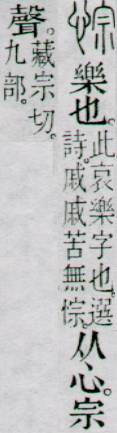 悰樂也。此哀樂字也。選詩。戚戚苦無悰。从心。宗
聲。藏宗切。九部。